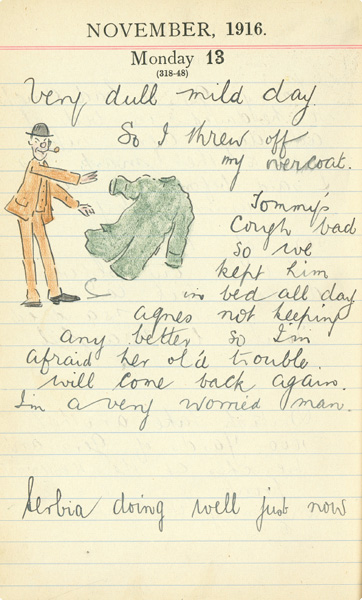 NOVEMBER, 1916.
Monday 13
(318-48)
Very dull mild day.
So I threw off
my overcoat.
Tommy's
Cough bad
so we
kept him
in bed all day
agnes not keeping
any better so I'm
afraid her old trouble
will come back again.
I'm a very worried man.
Serbia doing well just now